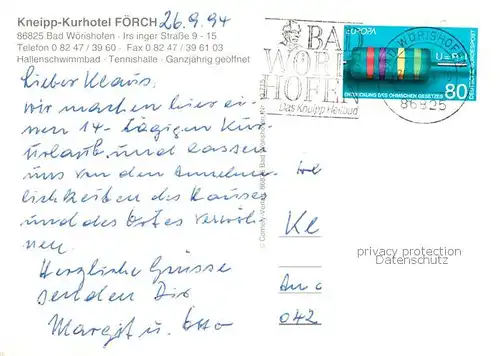 Kneipp-Kurhotel FÖRCH 26.9.94
86825 Bad Wörishofen · Irsinger Straße 9 - 15
Telefon 0 82 47 / 39 60 · Fax 0 82 47 / 39 61 03
Hallenschwimmbad · Tennishalle · Ganzjährig geöffnet
Lieber Klaus,
wir machen hier ei-
nen 14-tägigen Kur-
urlaub und lassen
uns von den Annehm-
lichkeiten des Hauses
und des Ortes verwöh-
nen.
Herzliche Grüsse
senden Dir
Margit u. Otto
BAD
WÖRIS
HOFEN
Das Kneipp Heilbad
EUROPA
WÖRISHOFEN
86825
ENTDECKUNG DES OHMSCHEN GESETZES
80
DEUTSCHE BUNDESPOST
Kl
An
042
privacy protection
Datenschutz